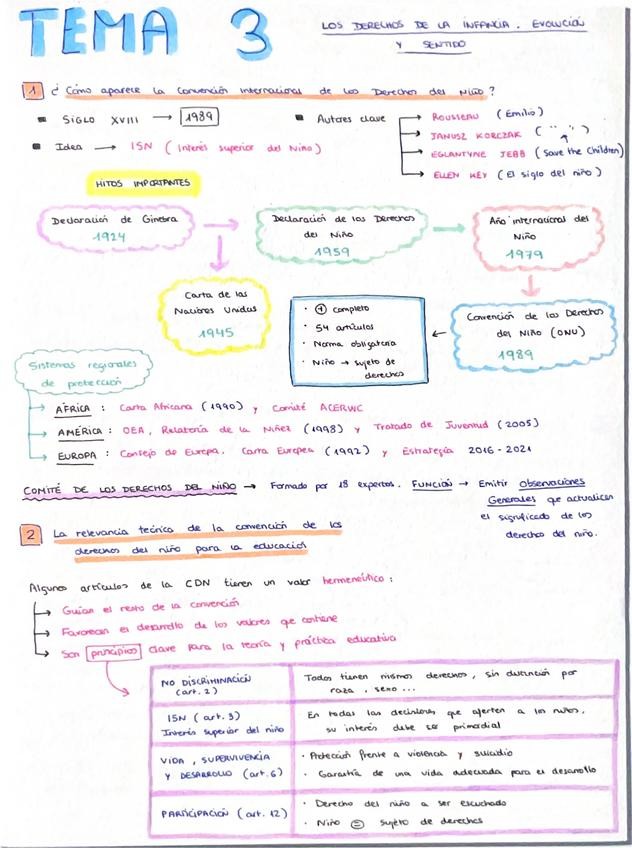 TEMA 3
LOS DERECHOS DE LA INFANCIA. EVOLUCIÓN
Y SENTIDO
1 ¿Cómo aparece la Convención internacional de los Derechos del Niño?
▪ SIGLO XVIII → 1989
▪ Idea → ISN (Interés superior del Niño)
▪ Autores clave
→ ROUSSEAU (Emilio)
→ JANUSZ KORCZAK ( " " )
→ EGLANTYNE JEBB (Save the Children)
→ ELLEN KEY (El siglo del niño)
HITOS IMPORTANTES
Declaración de Ginebra
1924
Declaración de los Derechos
del Niño
1959
Año internacional del
Niño
1979
Carta de las
Naciones Unidas
1945
· + completo
· 54 artículos
· Norma obligatoria
· Niño → sujeto de
derechos
Convención de los Derechos
del Niño (ONU)
1989
Sistemas regionales
de protección
→ ÁFRICA : Carta Africana (1990) y Comité ACERWC
→ AMÉRICA : OEA, Relatoría de la Niñez (1998) y Tratado de Juventud (2005)
→ EUROPA : Consejo de Europa, Carta Europea (1992) y Estrategia 2016-2021
COMITÉ DE LOS DERECHOS DEL NIÑO → Formado por 18 expertos. FUNCIÓN → Emitir Observaciones
Generales que actualicen
el significado de los
derechos del niño.
2 La relevancia teórica de la convención de los
derechos del niño para la educación
Algunos artículos de la CDN tienen un valor hermenéutico :
→ Guían el resto de la convención
→ Favorecen el desarrollo de los valores que contiene
→ Son principios clave para la teoría y práctica educativa
NO DISCRIMINACIÓN
(art. 2)
Todos tienen mismos derechos, sin distinción por
raza, sexo ...
ISN (art. 3)
Interés superior del niño
En todas las decisiones que afecten a los niños,
su interés debe ser primordial
VIDA, SUPERVIVENCIA
Y DESARROLLO (art. 6)
· Protección frente a violencia y suicidio
· Garantía de una vida adecuada para el desarrollo
PARTICIPACIÓN (art. 12)
· Derecho del niño a ser escuchado
· Niño = sujeto de derechos